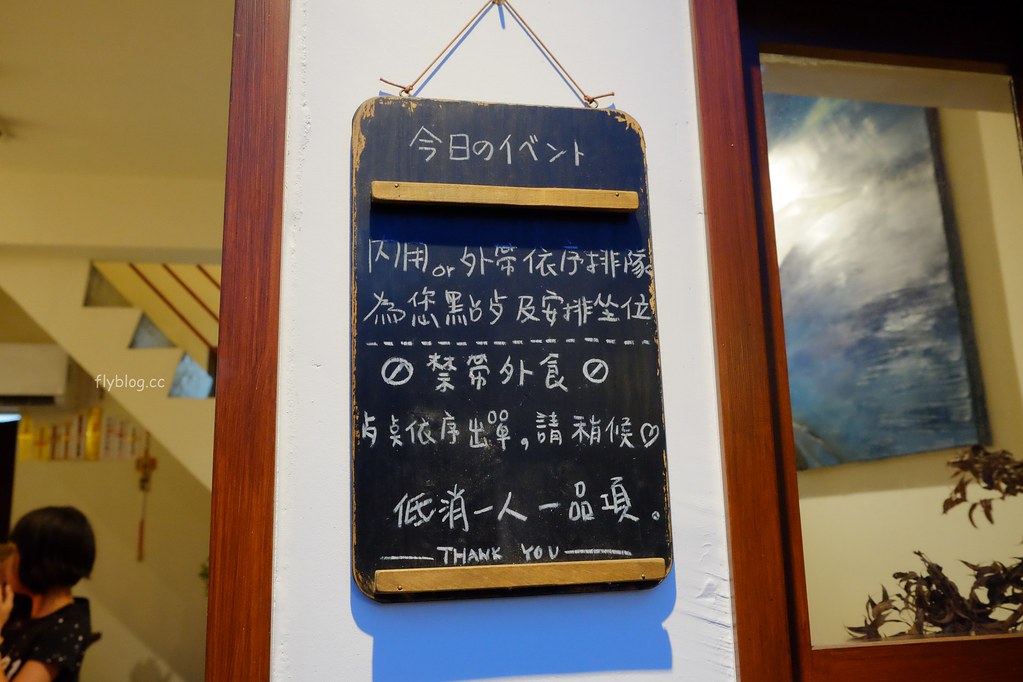 今日のイベント
內用or外帶依序排隊
為您點占及安排坐位
禁帶外食
占桌依序出單,請稍候♡
低消一人一品項。
THANK YOU
flyblog.cc